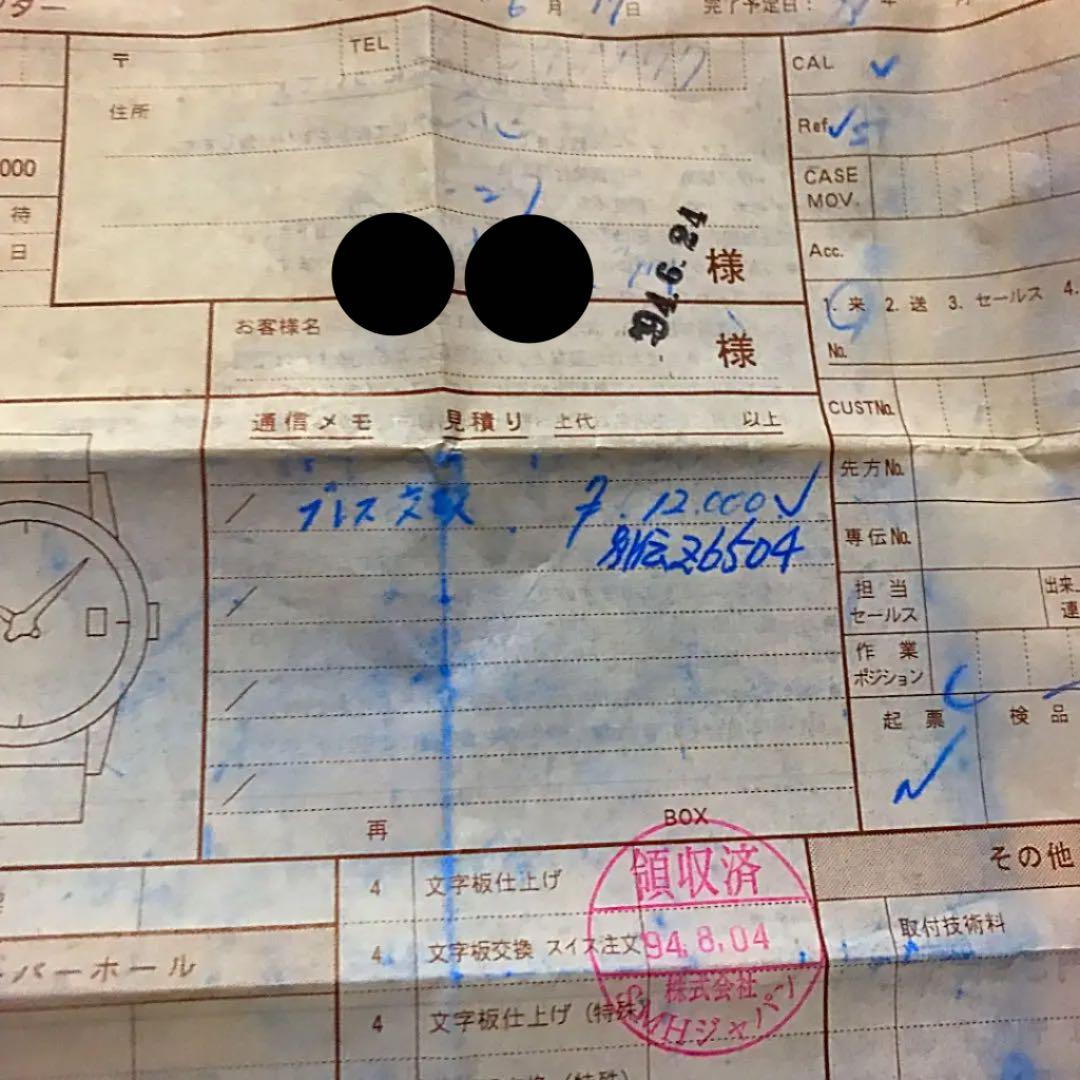 ター 6月17日 完了予定日： 年 月
〒 TEL
CAL
住所
Ref.
000
CASE
MOV.
待
日
Acc.
様
'94.6.24
1. 来 2. 送 3. セールス 4.
お客様名 様
No.
CUST No.
通信メモ 見積り 上代 以上
先方No.
ブレス交換 12.000
別伝 26504
専伝No.
担当
セールス
出来上
連
作業
ポジション
起票 検品
再 BOX
その他
4 文字板仕上げ
領収済
取付技術料
4 文字板交換 スイス注文
94.8.04
バーホール
株式会社
SMHジャパン
4 文字板仕上げ（特殊）
（特殊）